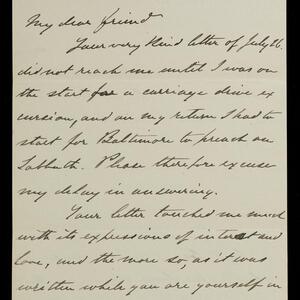 My dear friend
Your very kind letter of July 26.
did not reach me until I was on
the start for a carriage drive ex
cursion, and on my return I had to
start for Baltimore to preach on
Sabbath. Please therefore excuse
my delay in answering.
Your letter touched me much
with its expressions of interest and
love, and the more so, as it was
written while you are yourself in